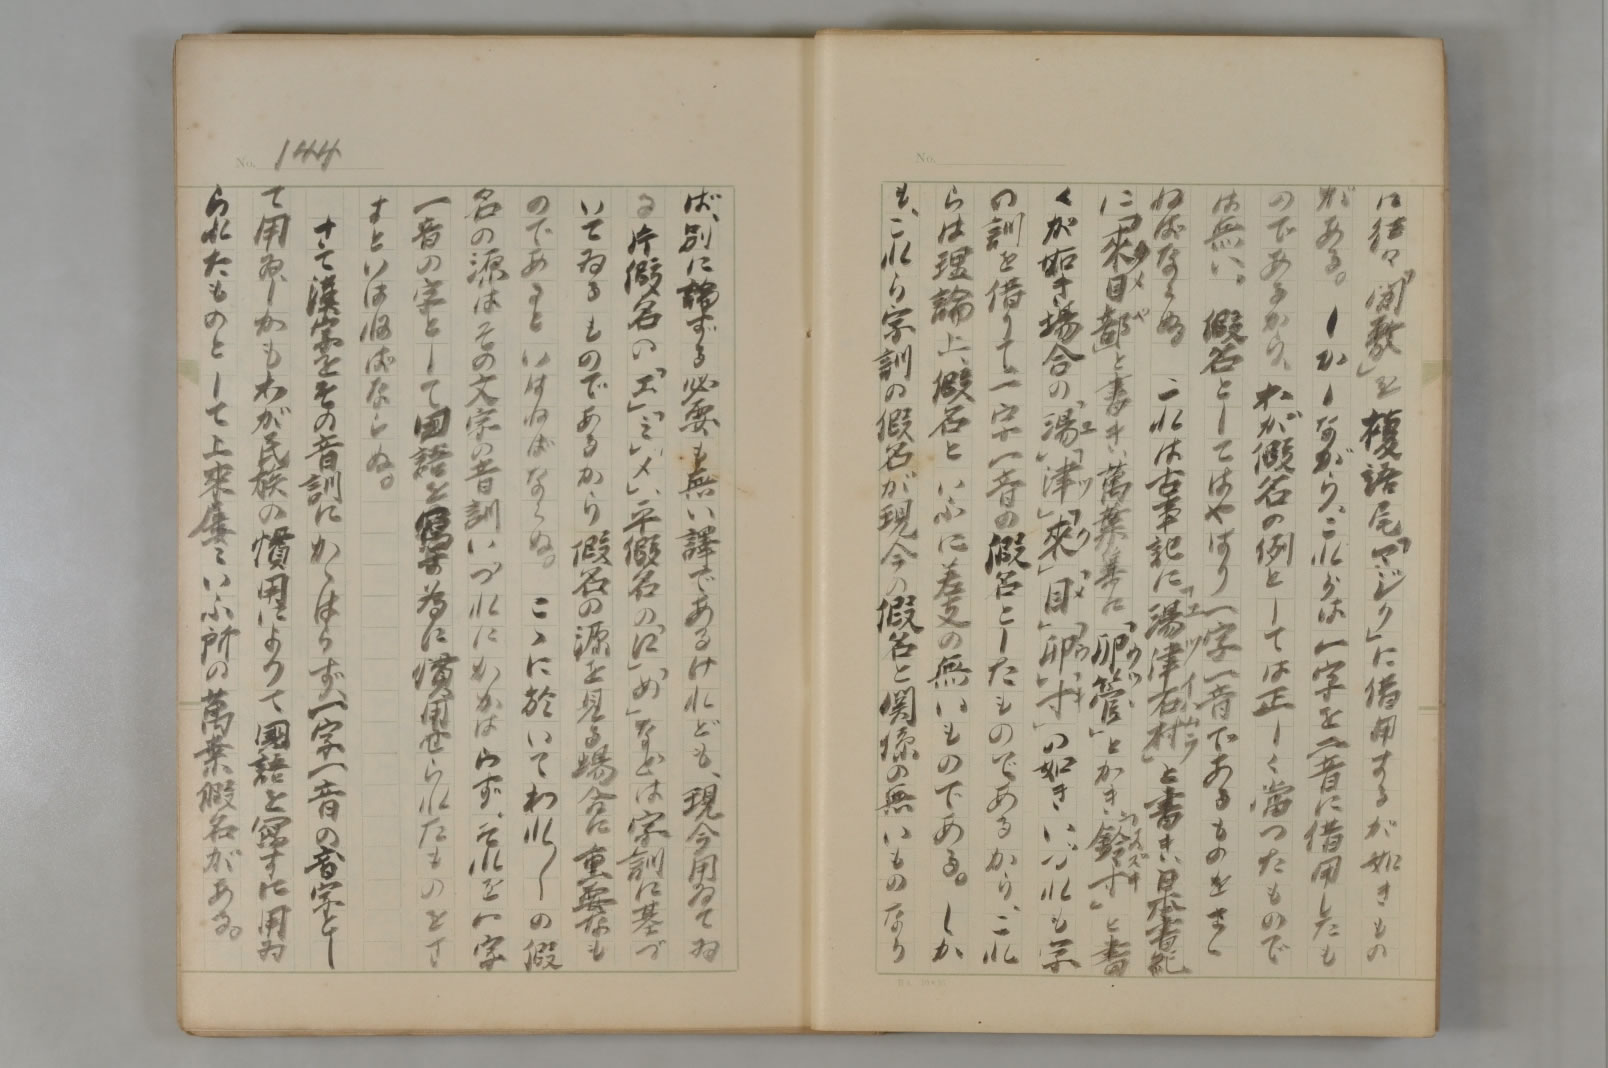 は往々「間敷」を複語尾「マジク」に借用するが如きもの
がある。しかしながら、これらは一字を二音に借用したも
のであるから、わが假名の例としては正しく當つたもので
は無い。假名としてはやはり一字一音であるものをささ
ねばならぬ。これは古事記に「湯津石村」と書き、日本書紀
ユツイハムラ
に「來目部」と書き、萬葉集に「卯管」とかき、「鈴寸」と書
クメベ
ウツツ
スズキ
くが如き場合の「湯」「津」「來」「目」「卯」「寸」の如きいづれも字
ユ
ツ
ク
メ
ウ
キ
の訓を借りて一字一音の假名としたものであるから、これ
らは理論上、假名といふに差支の無いものである。しか
も、これら字訓の假名が現今の假名と関係の無いものなら
No.
No. 144
ば、別に論ずる必要も無い譯であるけれども、現今用ゐてゐ
る片假名の「エ」「ミ」「メ」、平假名の「に」「め」などは字訓に基づ
いてゐるものであるから假名の源を見る場合に重要なも
のであるといはねばならぬ。ここに於いてわれ〳〵の假
名の源はその文字の音訓いづれにかかはらず、それを一字
一音の字として国語を寫す為に慣用せられたものをさ
すといはねばならぬ。
さて漢字をその音訓にかゝはらず、一字一音の音字とし
て用ゐ、しかもわが民族の慣用によりて國語を寫すに用ゐ
られたものとして上來屡々いふ所の萬葉假名がある。